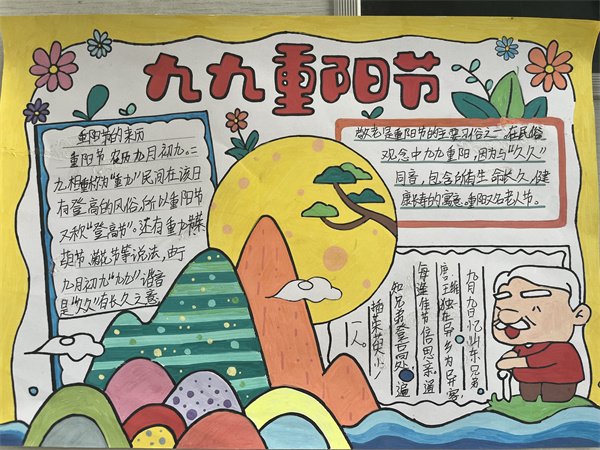 九九重阳节
重阳节的来历
重阳节,农历九月初九。二
九相重称为“重九”民间在该日
有登高的风俗,所以重阳节
又称“登高节”。还有重九节茱
萸节、菊花节等说法,由于
九月初九“九九”谐音
是“久久”有长久之意
敬老是重阳节的主要习俗之一。在民俗
观念中九九重阳,因为与“久久”
同音,包含有生命长久、健
康长寿的寓意。重阳又名老人节。
九月九日忆山东兄弟
唐:王维独在异乡为异客,
每逢佳节倍思亲。遥
知兄弟登高处,遍
插茱萸少
一人。